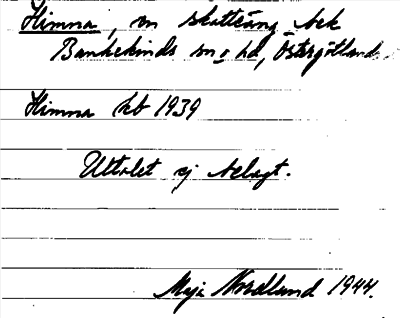 Himna, en skattäng bek
Bankekinds sn o hd, Östergötland.
Himna kb 1939
Uttalet ej belagt.
Maja Nordlund 1944.